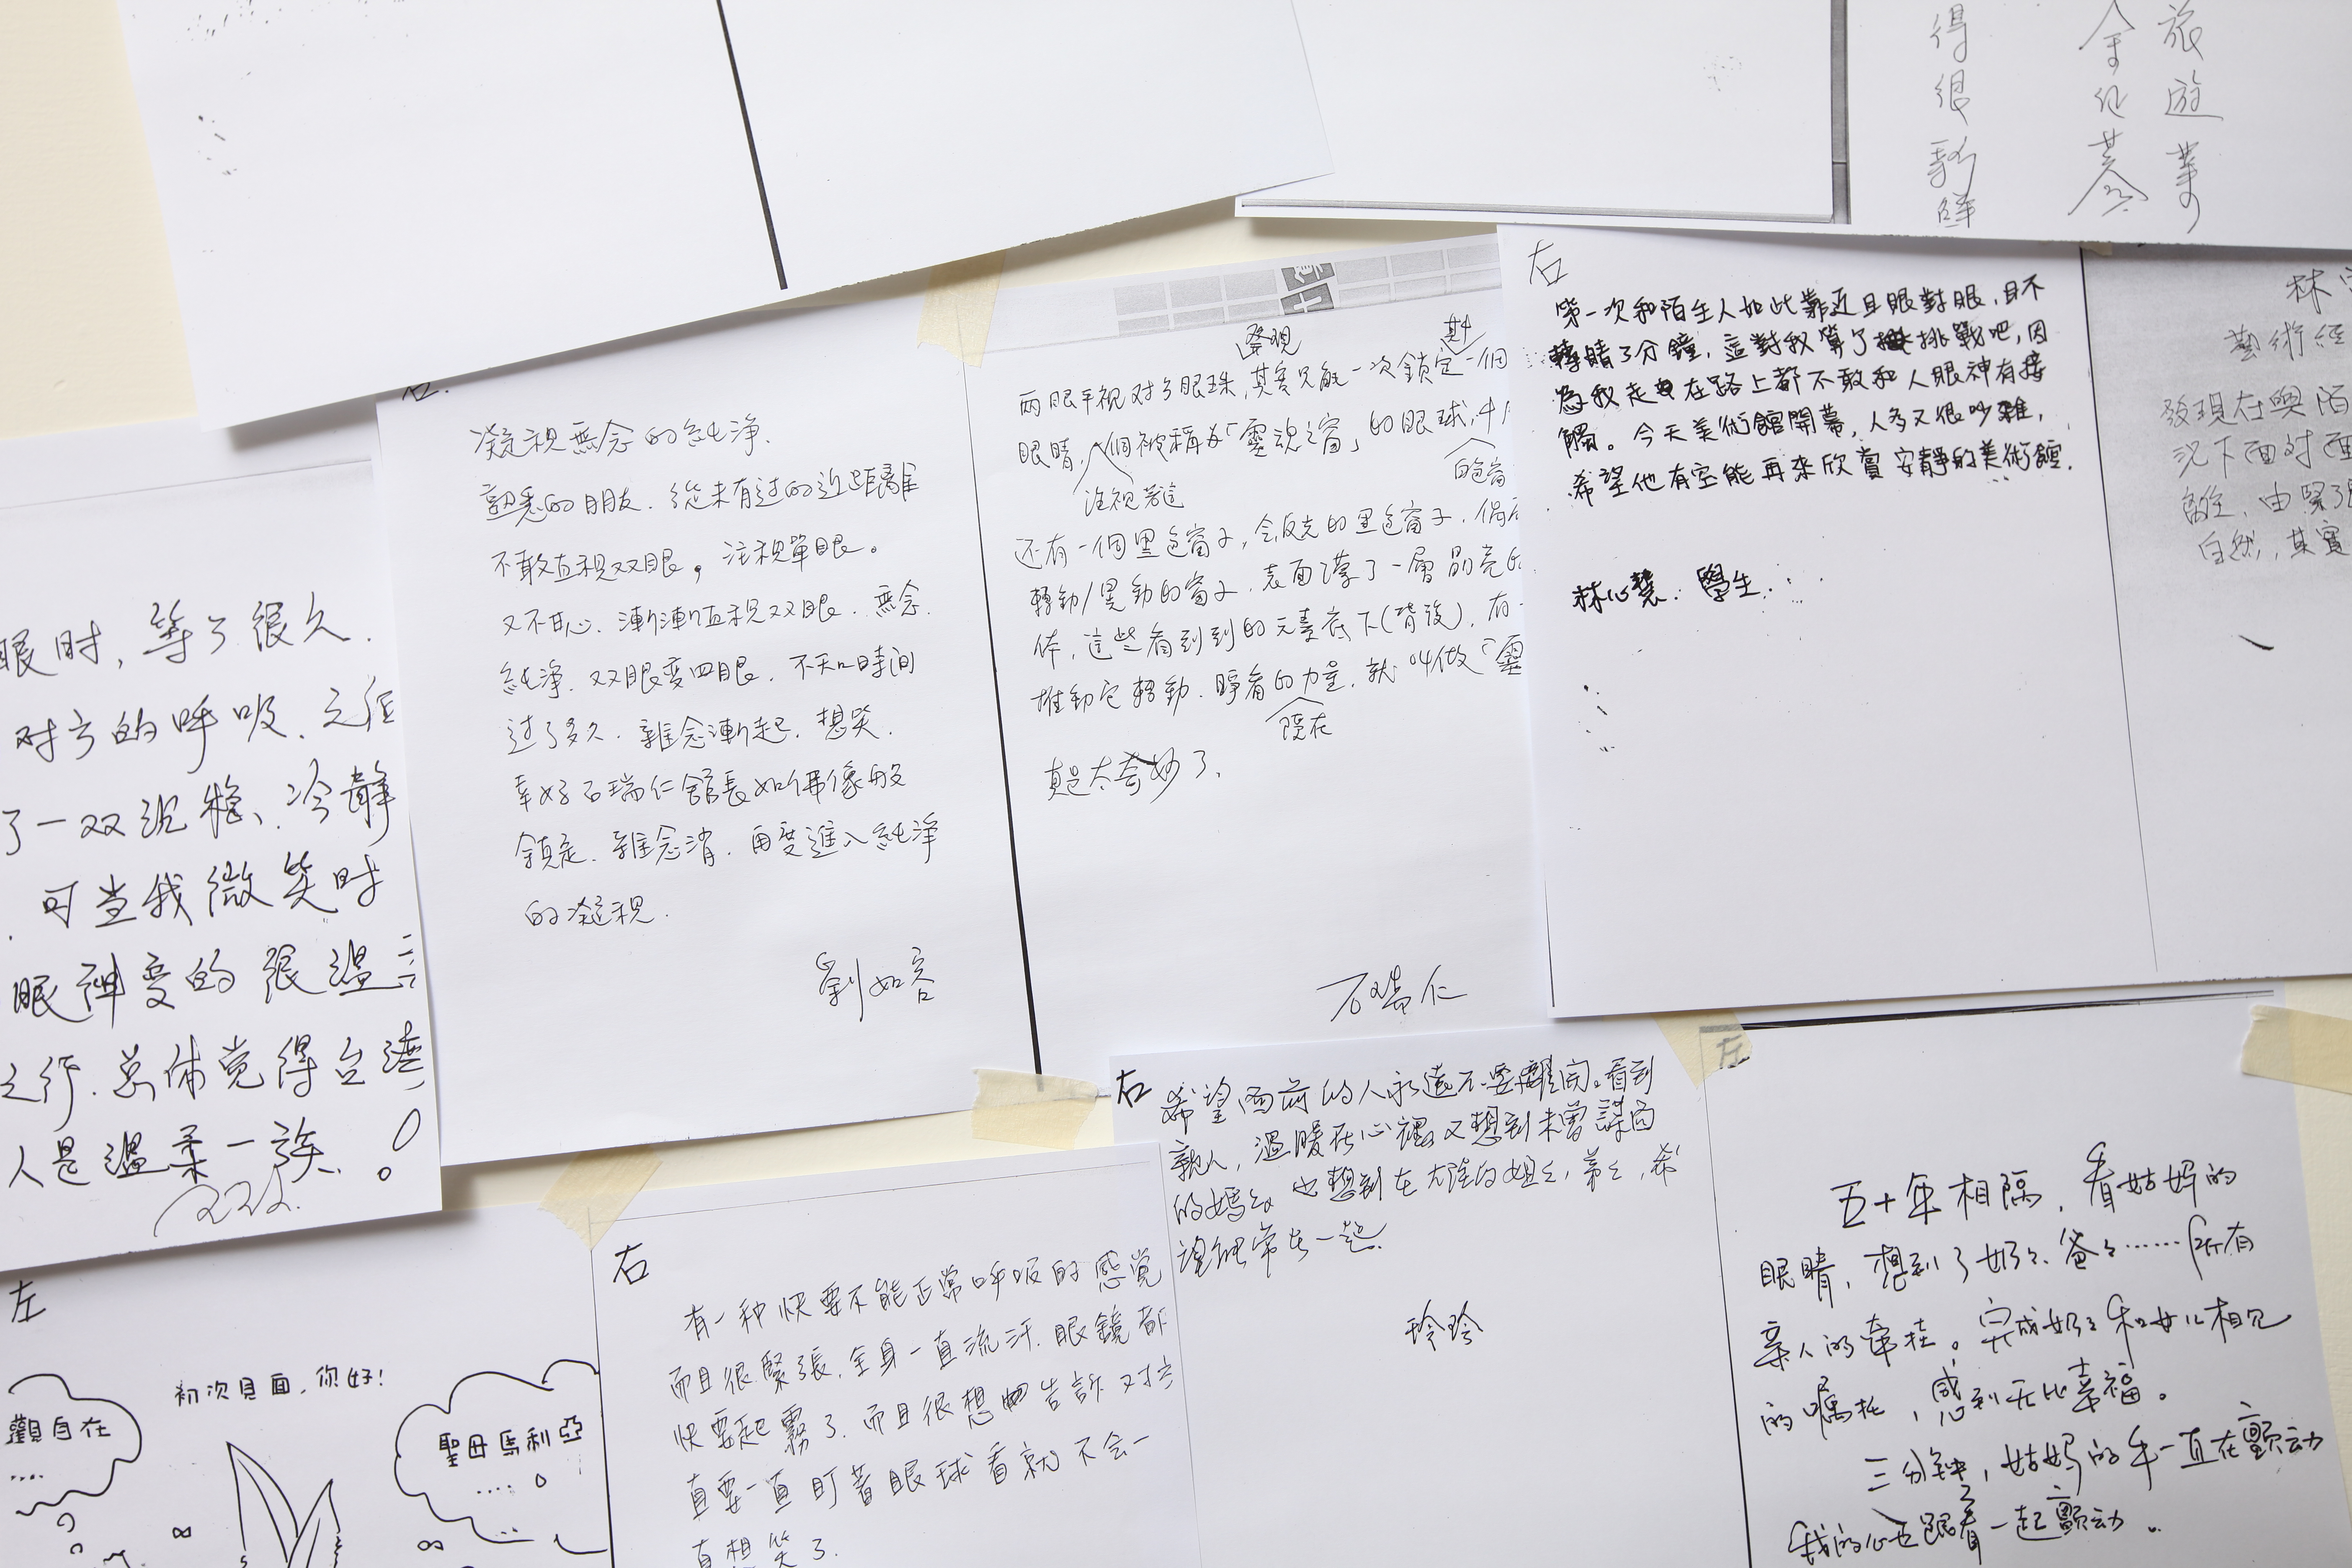 旅遊業
得很
右
第一次和陌生人如此靠近且眼對眼,目不
轉睛3分鐘,這對我算了挑戰吧,因
為我走在路上都不敢和人眼神有接
觸。今天美術館開幕,人多又很吵雜,
希望他有空能再來欣賞安靜的美術館.
林心慧. 學生.
林
藝術經
發現在與陌
況下面對面
由緊
自然,其實
凝視無念的純淨.
熟悉的朋友.從未有过的近距離
不敢直視双眼,注視單眼。
又不甘心.漸漸直視双眼.無念.
純淨.双眼變四眼.不知時間
过了多久.雜念漸起.想笑.
幸好石瑞仁館長如佛像般
鎮定.雜念消.再度進入純淨
的凝視.
劉如容
發現
两眼平視对方眼珠,其實只能一次鎖定一個
眼睛,個被稱为「靈魂之窗」的眼球,中
注視著這
还有一個黑色窗子,会反光的黑色窗子.
轉動/晃動的窗子.表面薄了一層晶亮的
体,這些看到到的元素底下(背後).有
推動它轉動.睜着的力量.就叫做「靈
隱在
真是太奇妙了、
石瑞仁
眼时,等了很久.
对方的呼吸.之后
了一双沉稳、冷静
.可当我微笑时
眼神变的很温
之行.总体觉得台湾
人是温柔一族.!
右
希望面前的人永遠不要離開。看到
親人,溫暖在心裡又想到未曾謀面
的媽々也想到在大陸的姐々,弟々,希
望能常在一起.
玲玲
左
五十年相隔,看姑妈的
眼睛,想到了奶々、爸々……所有
亲人的牵挂。完成奶々和女儿相见
的嘱托,感到无比幸福。
三分钟,姑妈的手一直在颤动
我的心也跟着一起颤动。
右
有一种快要不能正常呼吸的感觉
而且很緊張,全身一直流汗.眼鏡都
快要起霧了.而且很想告訴对方
直要一直盯著眼球看就不会一
直想笑了.
左
初次見面,你好!
觀自在
....
聖母馬利亞
....